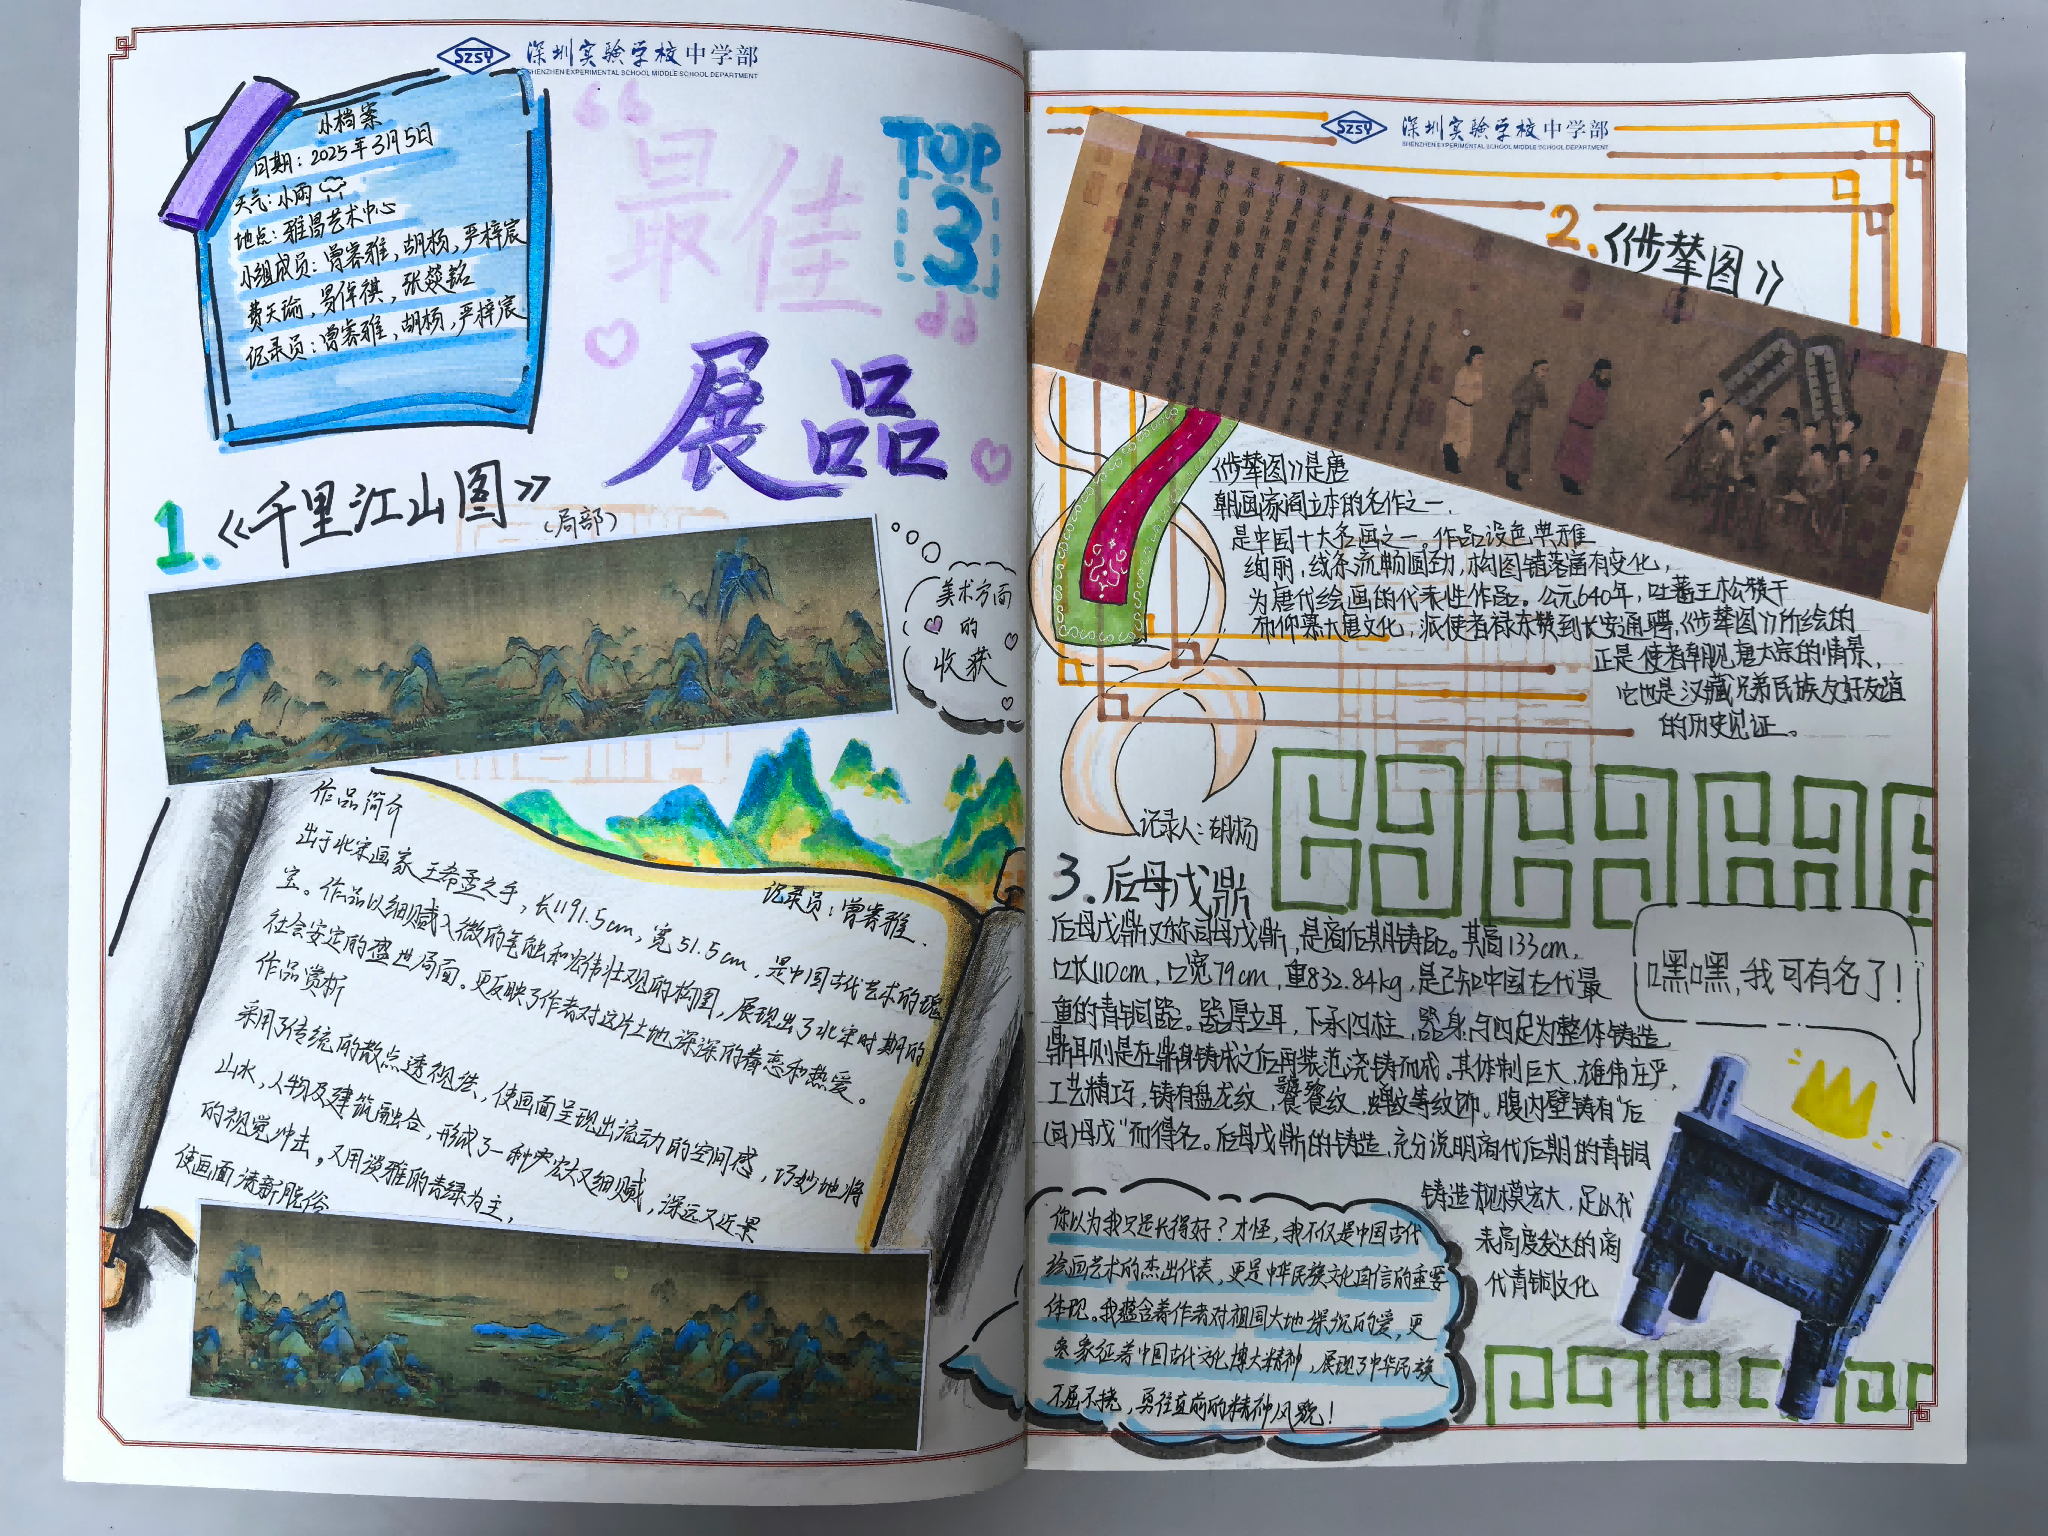 SZSY 深圳实验学校中学部
SHENZHEN EXPERIMENTAL SCHOOL MIDDLE SCHOOL DEPARTMENT
小档案
日期：2025年3月5日
天气：小雨
地点：雅昌艺术中心
小组成员：曾睿雅，胡杨，严梓宸
费天瑜，易倬祺，张燚铭
记录员：曾睿雅，胡杨，严梓宸
“最佳
展品”
TOP
3
1.《千里江山图》
（局部）
美术方面
的
收获
作品简介
记录员：曾睿雅.
出于北宋画家王希孟之手，长1191.5cm，宽51.5cm，是中国古代艺术的瑰
宝。作品以细腻入微的笔触和宏伟壮观的构图，展现出了北宋时期的
社会安定的盛世局面。更反映了作者对这片土地深深的眷恋和热爱。
作品赏析
采用了传统的散点透视法，使画面呈现出流动的空间感，巧妙地将
山水，人物及建筑融合，形成了一种宏大又细腻，深远又近景
的视觉冲击。又用淡雅的青绿为主，
使画面清新脱俗
SZSY 深圳实验学校中学部
SHENZHEN EXPERIMENTAL SCHOOL MIDDLE SCHOOL DEPARTMENT
2.《步辇图》
《步辇图》是唐
朝画家阎立本的名作之一.
是中国十大名画之一。作品设色典雅
绚丽，线条流畅圆劲，构图错落富有变化，
为唐代绘画的代表性作品。公元640年，吐蕃王松赞干
布仰慕大唐文化，派使者禄东赞到长安通聘，《步辇图》所绘的
正是使者朝见唐太宗的情景，
它也是汉藏兄弟民族友好友谊
的历史见证。
记录人：胡杨
3.后母戊鼎
后母戊鼎又称司母戊鼎，是商后期铸品。其高133cm，
口长110cm，口宽79cm，重832.84kg，是已知中国古代最
重的青铜器。器厚立耳，下承四柱，器身与四足为整体铸造，
鼎耳则是在鼎身铸成之后再装范浇铸而成。其体制巨大，雄伟庄严，
工艺精巧，铸有盘龙纹，饕餮纹，蝉纹等纹饰。腹内壁铸有“后
（司）母戊”而得名。后母戊鼎的铸造，充分说明商代后期的青铜
铸造规模宏大，足以代
表高度发达的商
代青铜文化
嘿嘿，我可有名了！
你以为我只是长得好？才怪，我不仅是中国古代
绘画艺术的杰出代表，更是中华民族文化自信的重要
体现。我蕴含着作者对祖国大地深沉的爱，更
象征着中国古代文化博大精神，展现了中华民族
不屈不挠，勇往直前的精神风貌！